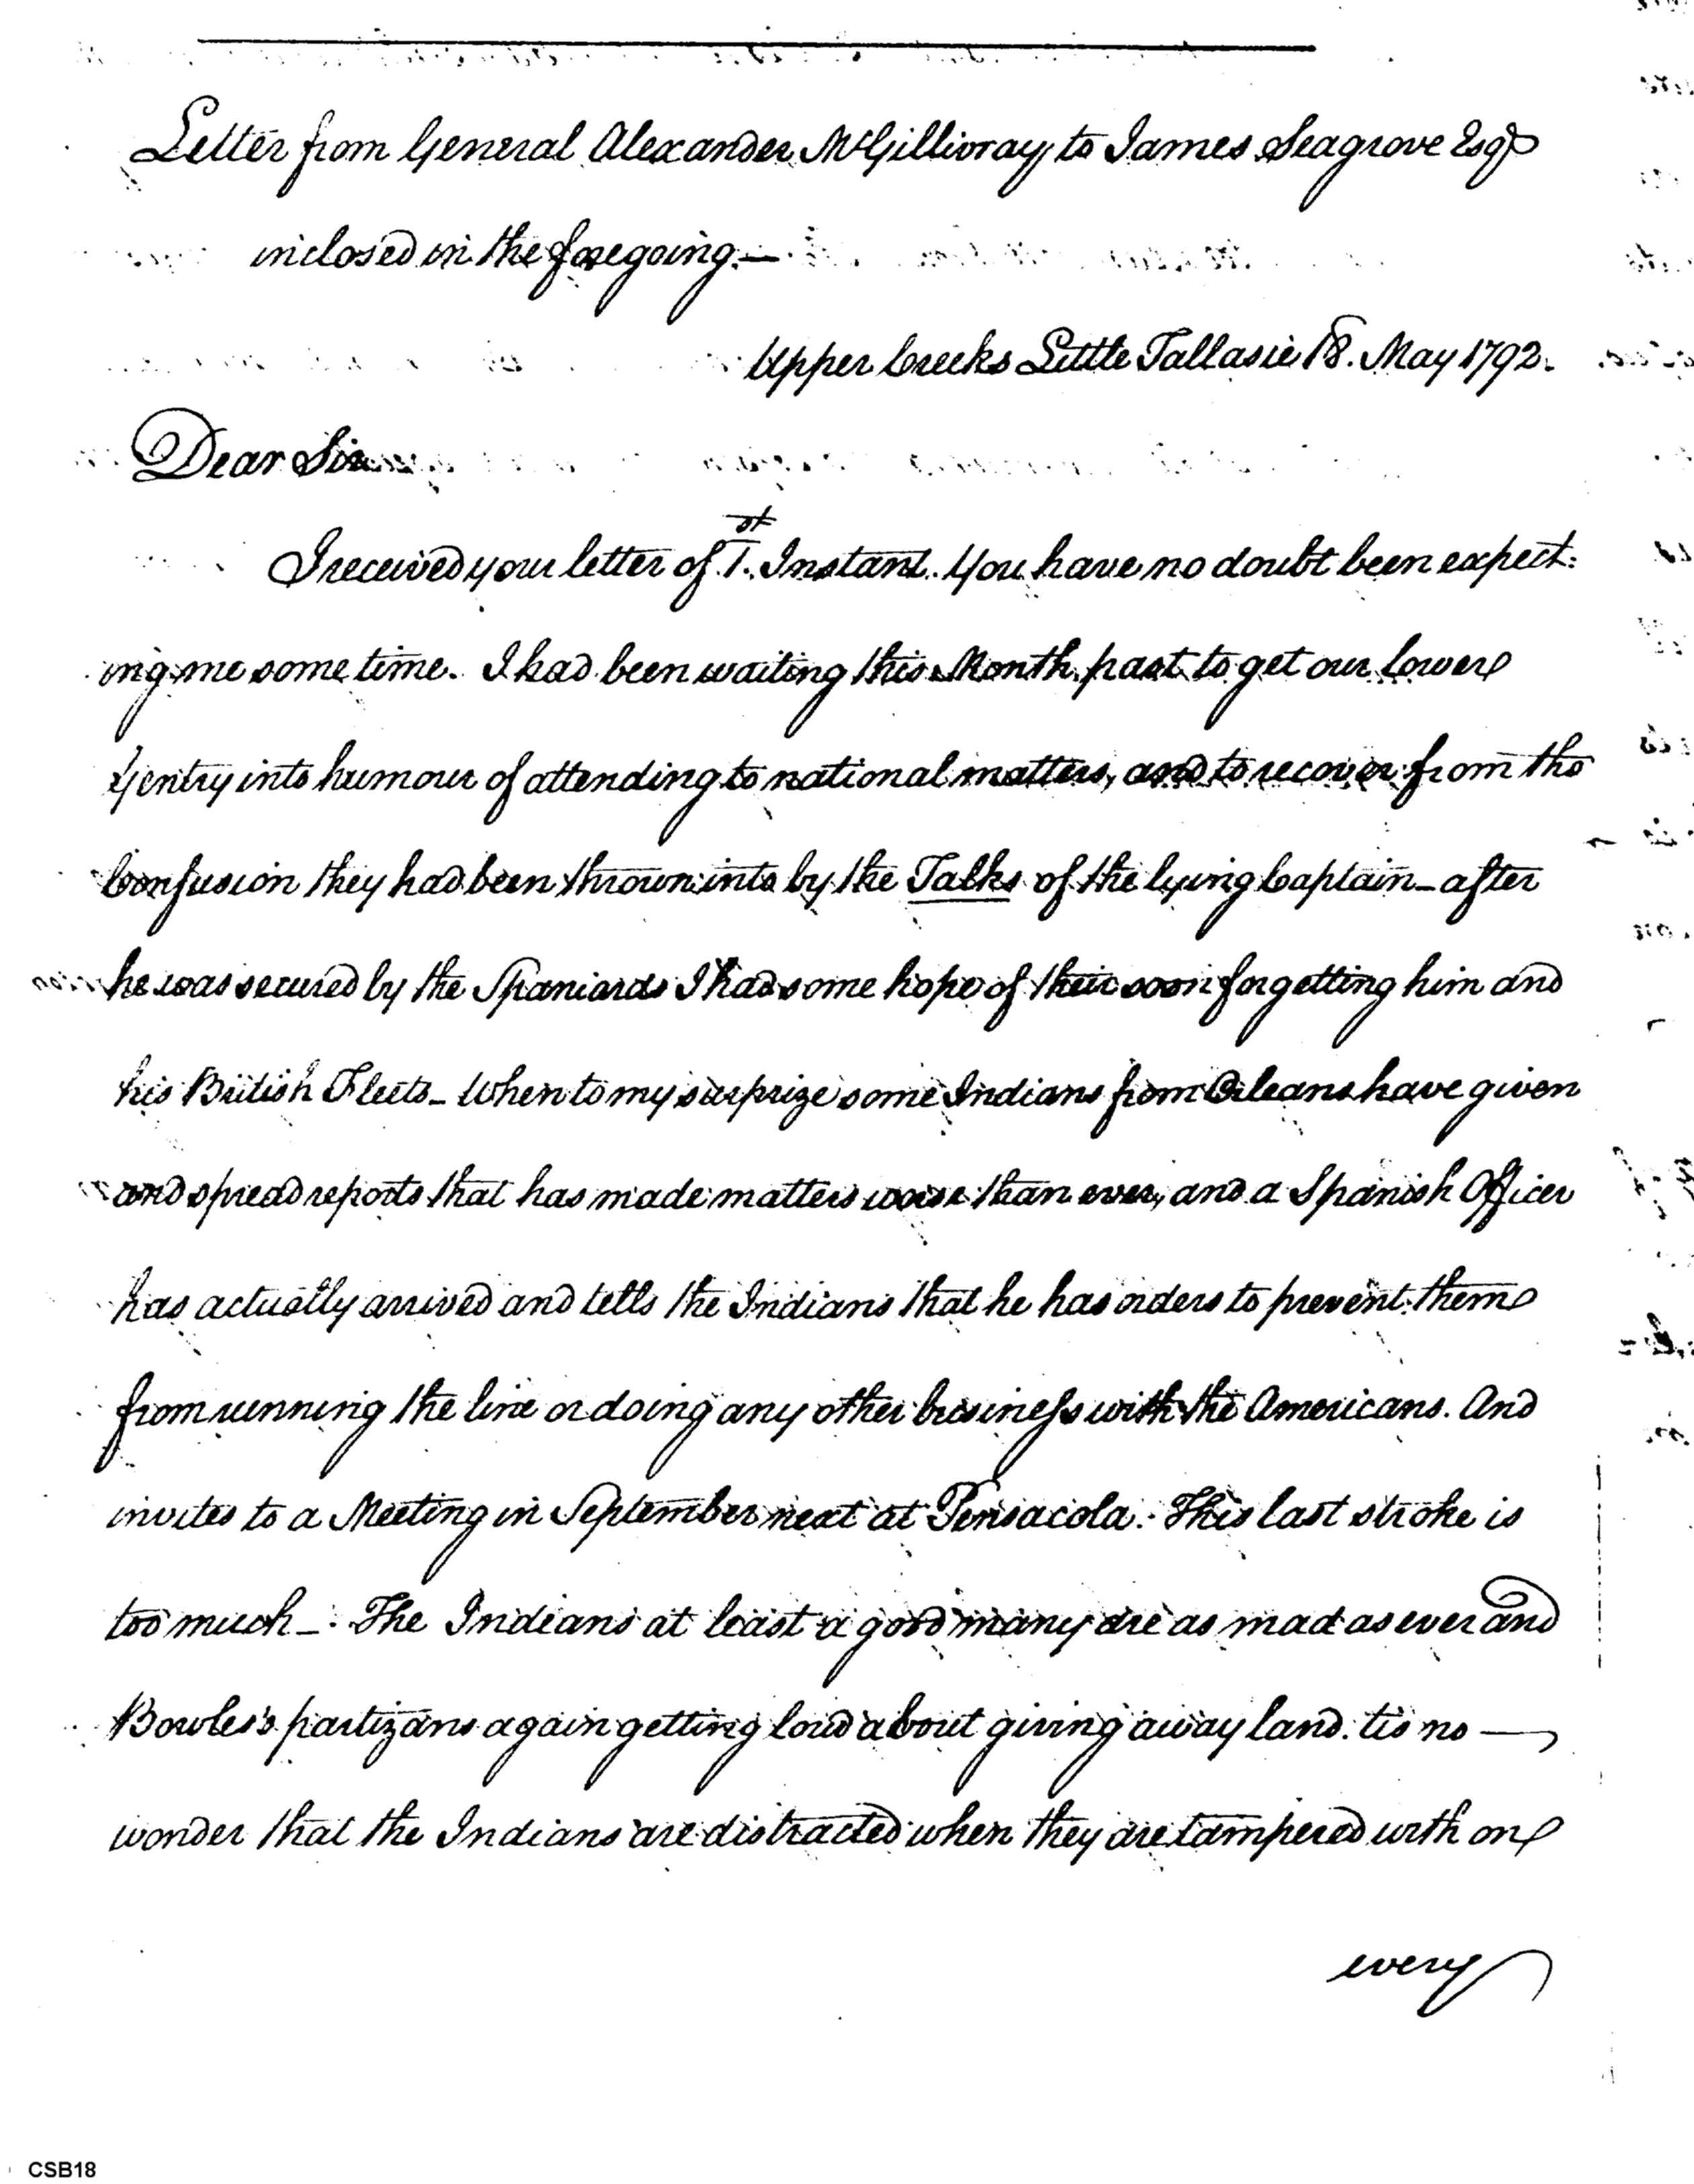 Letter from General Alexander McGillivray to James Seagrove Esqr
inclosed in the foregoing.—
Upper Creeks Little Tallasie 18. May 1792.
Dear Sir
I received your letter of 1.st Instant. You have no doubt been expect:
ing me some time. I had been waiting this Month past to get our lower
Gentry into humour of attending to national matters, and to recover from the
Confusion they had been thrown into by the Talks of the lying Captain – after
he was secured by the Spaniards I had some hope of their soon forgetting him and
his British Fleets – When to my surprize some Indians from Orleans have given
and spread reports that has made matters worse than ever, and a Spanish Officer
has actually arrived and tells the Indians that he has orders to prevent them
from running the line or doing any other business with the Americans. And
invites to a Meeting in September next at Pensacola. This last stroke is
too much –. The Indians at least a good many are as mad as ever and
Bowles's partizans again getting loud about giving away land. tis no —
wonder that the Indians are distracted when they are tampered with on
every
CSB18